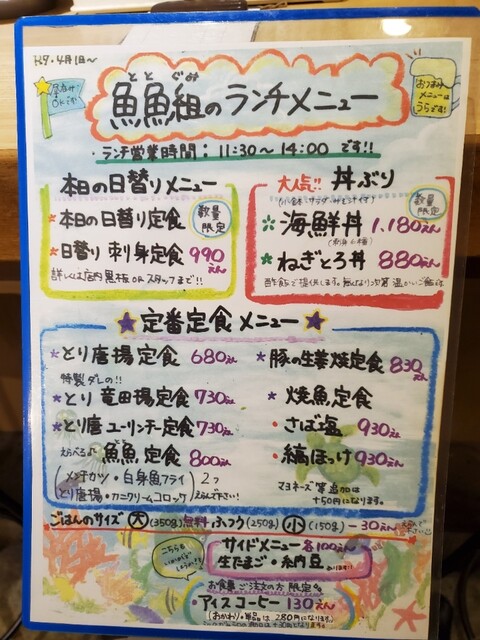 H29・4月1日~
昼飲み
OKです!
ととぐみ
魚魚組のランチメニュー
おつまみ
メニューは
うらです!
・ランチ営業時間:11:30~14:00です!!
本日の日替りメニュー
数量
限定
・本日の日替り定食
★日替り 刺身定食 990えん
詳しくは店内黒板ORスタッフまで!!
大人気!! 丼ぶり
数量
限定
海鮮丼 1,180えん
ねぎとろ丼 880えん
酢飯で提供します。無くなり次第 温かいご飯
★定番定食メニュー★
★とり唐揚定食 680えん
特製ダレの!!
★とり竜田揚定食 730えん
★とり唐ユーリンチー定食 730えん
えらべる 魚魚定食 800えん
(メンチカツ・白身魚フライ
とり唐揚・カニクリームコロッケ)
2つ
えらんで下さい!
★豚の生姜焼定食 830えん
★焼魚定食
・さば塩 930えん
・縞ほっけ 930えん
マヨネーズ等追加は
+50円になります。
ごはんのサイズ 大(350g)無料 ふつう(250g) 小(150g) -30えん
こちらも
サイドメニュー各100えん
生たまご・納豆
お食事ご注文の方限定
・アイスコーヒー 130えん
(おかわり・単品は280円になります。)